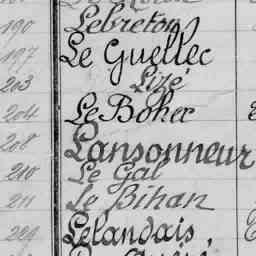 190 Lebreton
197 Le Guellec
203 Lizé
204 Le Boher
208 Lansonneur
210 Le Gal
211 Le Bihan
229 Lelandais